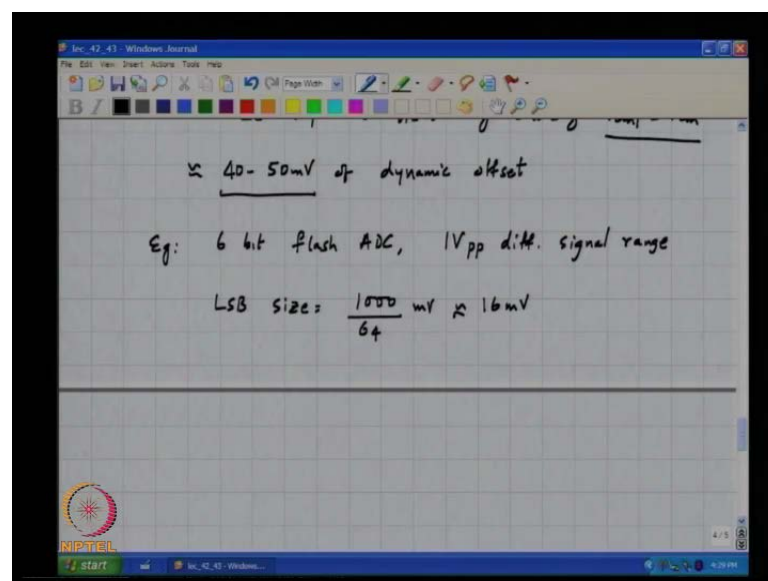 lec_42_43 - Windows Journal
File Edit View Insert Actions Tools Help
Page Width
B I
≈ 40-50mV of dynamic offset
Eg: 6 bit flash ADC, 1Vpp diff. signal range
LSB size: 1000/64 mV ≈ 16mV
4/5
NPTEL
start lec_42_43 - Windows... 4:29 PM